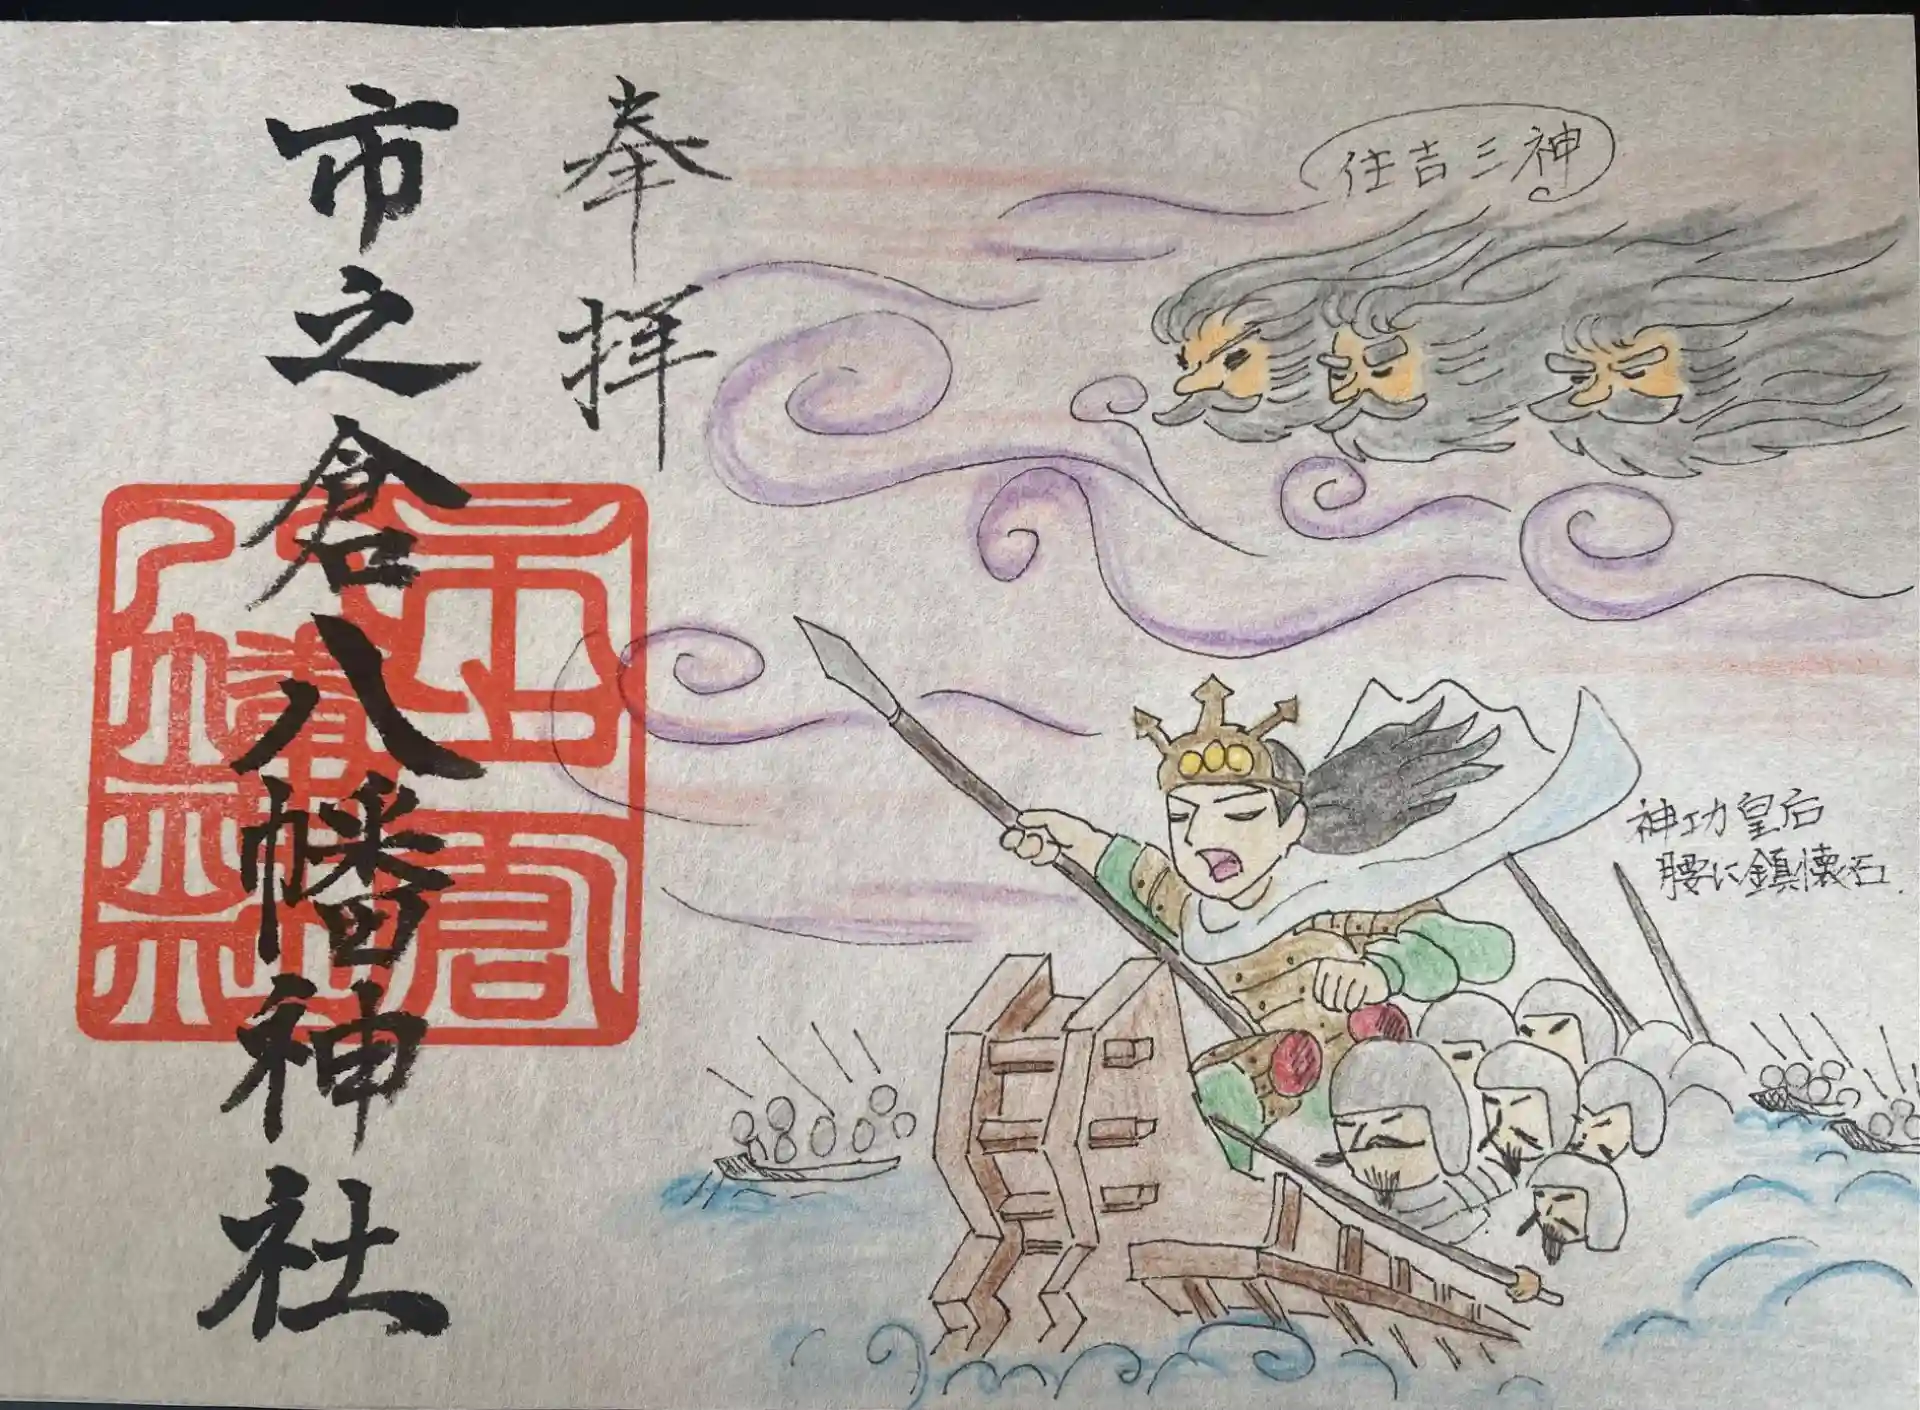 奉拝
市之倉八幡神社
市之倉
八幡神社
住吉三神
神功皇后
腰に鎮懐石